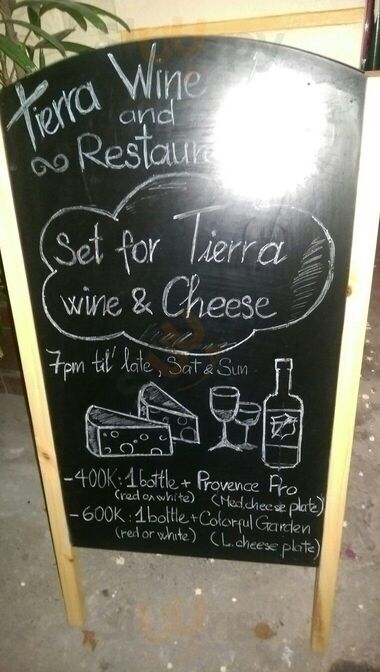 Tierra Wine
and
Restaur
Set for Tierra
wine & Cheese
7pm til' late, Sat & Sun
-400K: 1 bottle + Provence Pro
(red or white) (Med. cheese plate)
-600K: 1 bottle + Colorful Garden
(red or white) (L. cheese plate)